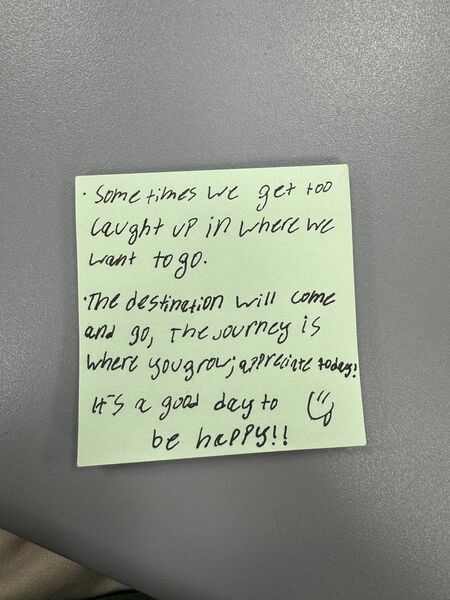 · Sometimes we get too
caught up in where we
want to go.
· The destination will come
and go, The journey is
where you grow; appreciate today!
It's a good day to
be happy!!